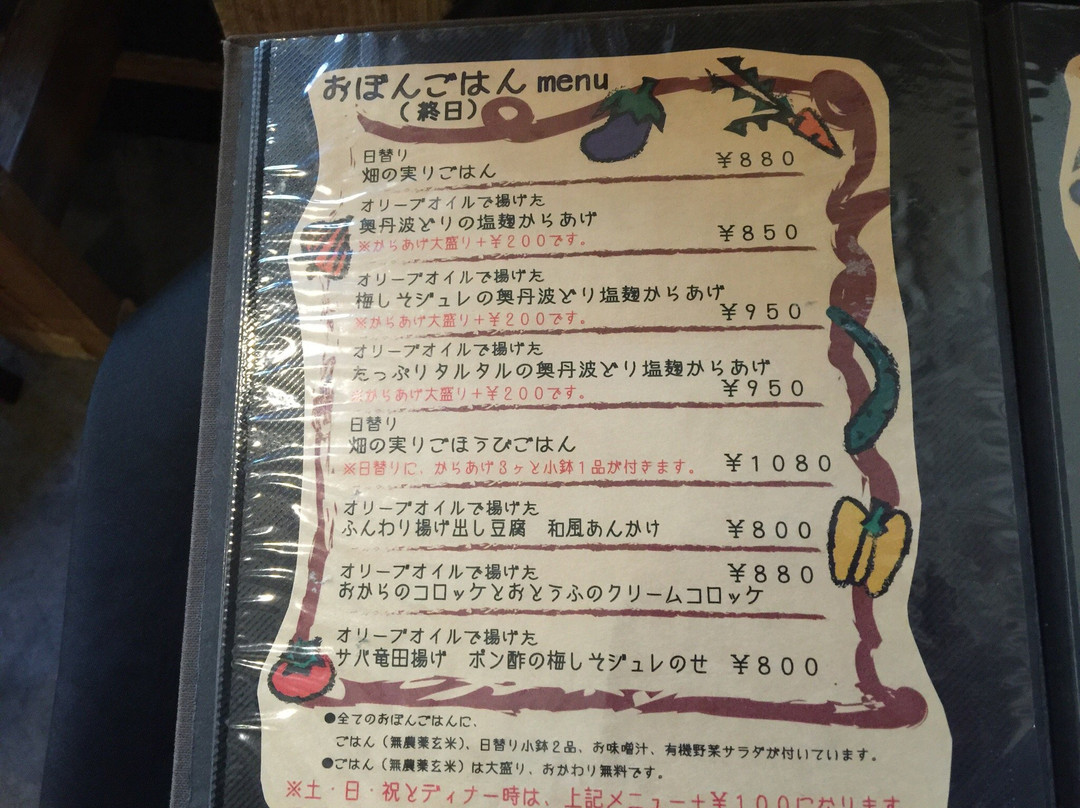 おぼんごはん menu
（終日）
日替り
畑の実りごはん ￥８８０
オリーブオイルで揚げた
奥丹波どりの塩麹からあげ
※からあげ大盛り＋￥２００です。 ￥８５０
オリーブオイルで揚げた
梅しそジュレの奥丹波どり塩麹からあげ
※からあげ大盛り＋￥２００です。 ￥９５０
オリーブオイルで揚げた
たっぷりタルタルの奥丹波どり塩麹からあげ
※からあげ大盛り＋￥２００です。 ￥９５０
日替り
畑の実りごほうびごはん
※日替りに、からあげ３ヶと小鉢１品が付きます。 ￥１０８０
オリーブオイルで揚げた
ふんわり揚げ出し豆腐　和風あんかけ ￥８００
オリーブオイルで揚げた ￥８８０
おからのコロッケとおとうふのクリームコロッケ
オリーブオイルで揚げた
サバ竜田揚げ　ポン酢の梅しそジュレのせ ￥８００
●全てのおぼんごはんに、
ごはん（無農薬玄米）、日替り小鉢２品、お味噌汁、有機野菜サラダが付いています。
●ごはん（無農薬玄米）は大盛り、おかわり無料です。
※土・日・祝とディナー時は、上記メニュー＋￥１００になります